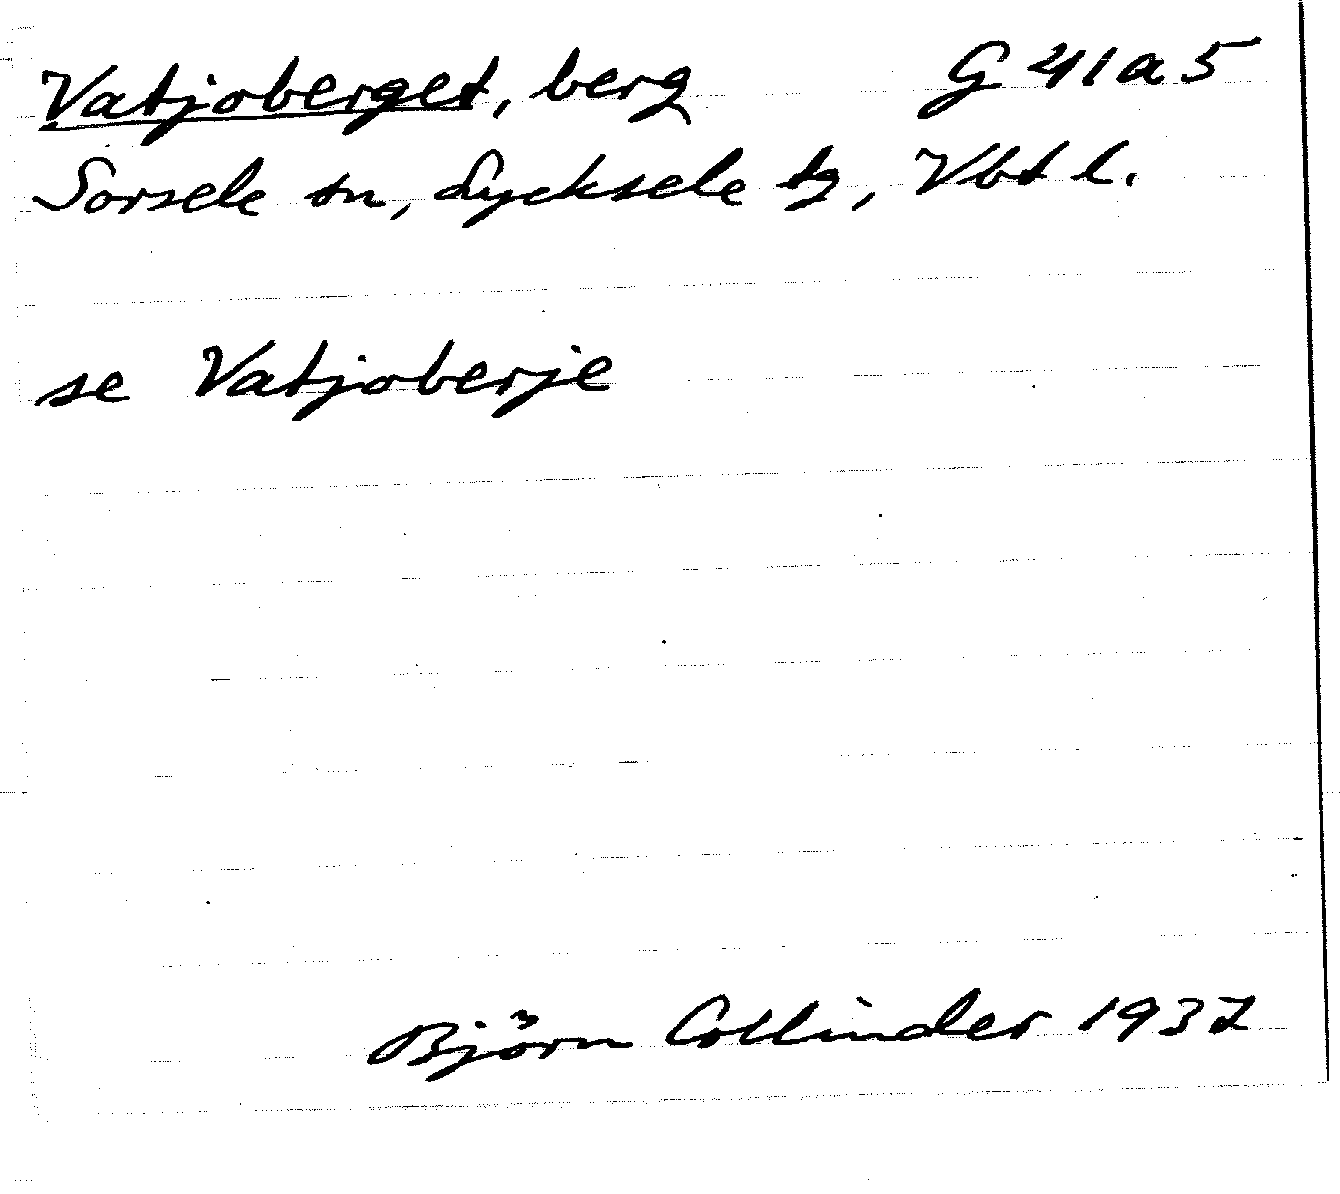 Vatjoberget, berg G 41 a 5
Sorsele sn, Lycksele tg, Vbt l.
se Vatjoberje
Björn Collinder 1937